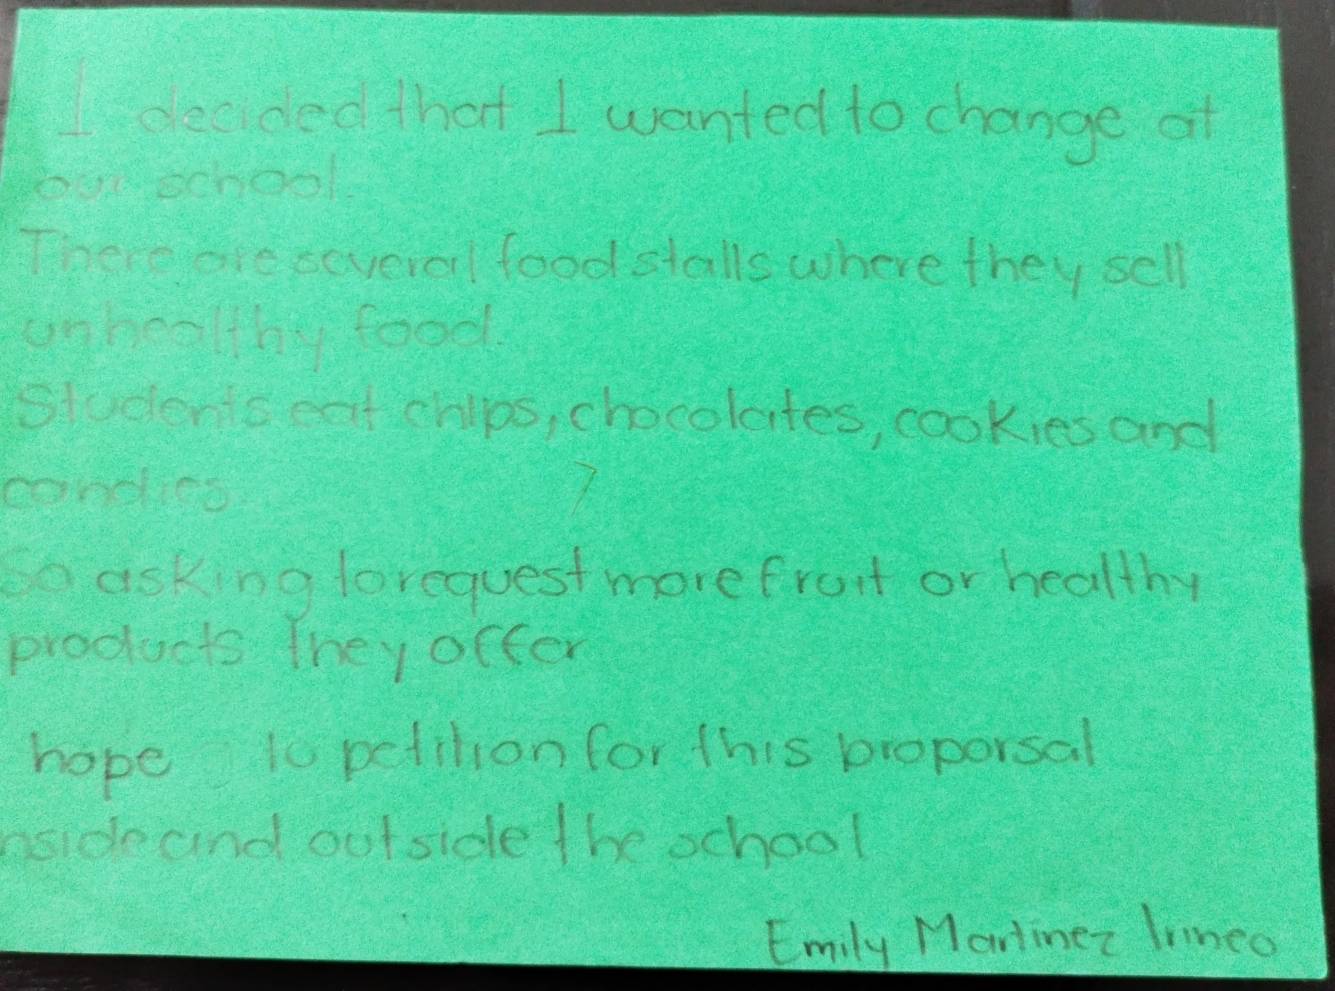 I decided that I wanted to change at
our school.
There are several food stalls where they sell
unhealthy food.
Students eat chips, chocolates, cookies and
candies.
So asking to request more fruit or healthy
products they offer
hope to petition for this proporsal
nside and outside the school
Emily Martinez Irineo